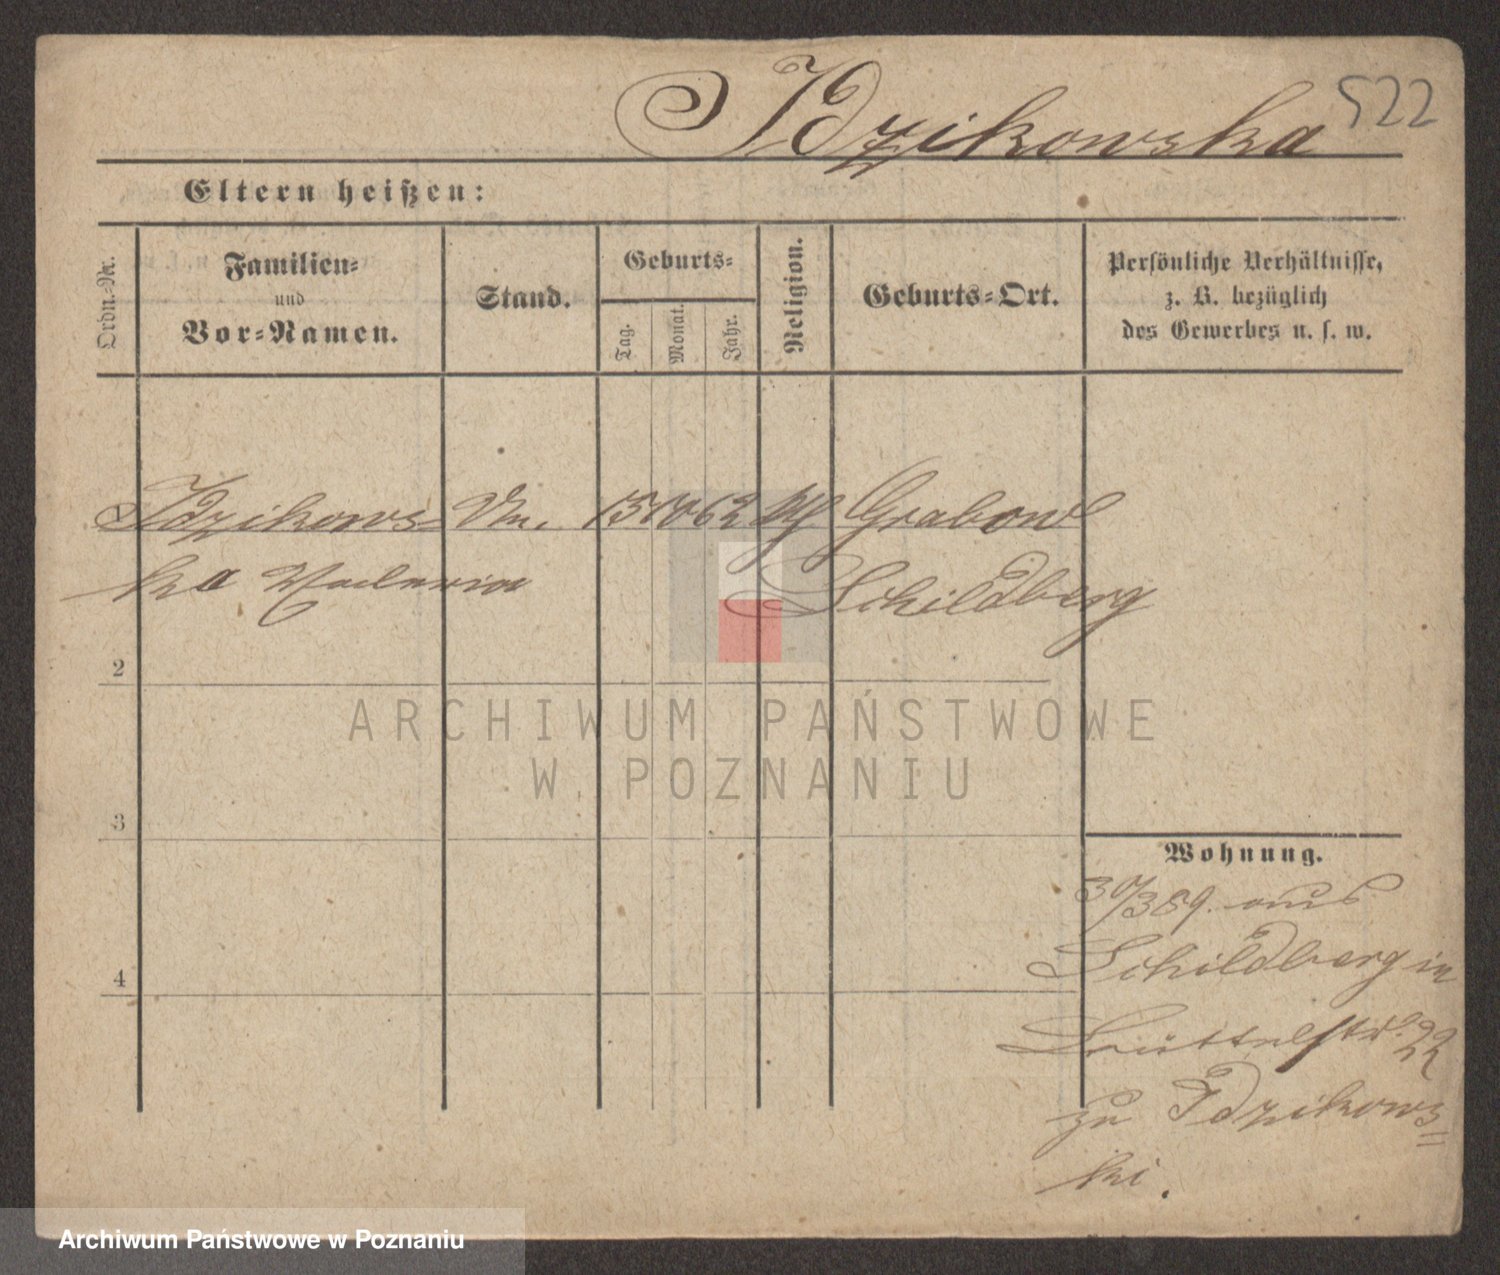 Idzikowska 522
Eltern heißen:
Ordn.-Nr.
Familien-
und
Vor-Namen.
Stand.
Geburts-
Tag.
Monat.
Jahr.
Religion.
Geburts-Ort.
Persönliche Verhältnisse,
z. B. bezüglich
des Gewerbes u. s. w.
Idzikows- 15 10 62 Grabow
ka Valeria Schildberg
2
3
4
Wohnung.
30/3 89. aus
Schildberg in
22
zu Idzikows=
ki.
ARCHIWUM PAŃSTWOWE
W POZNANIU
Archiwum Państwowe w Poznaniu